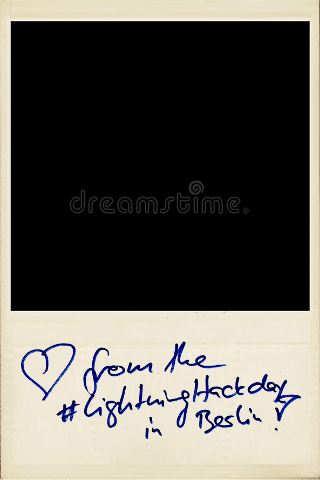 dreamstime.
♡ from the
#LightningHackday
in Berlin!